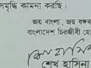 সমৃদ্ধি কামনা করছি।
জয় বাংলা, জয় বঙ্গবন্ধু
বাংলাদেশ চিরজীবী হো
শেখ হাসিনা